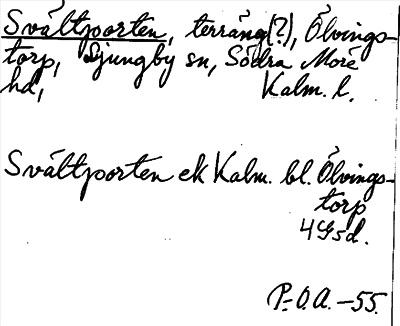 Svältporten, terräng(?), Ölvings-
torp, Ljungby sn, Södra Möre
hd, Kalm. l.
Svältporten ek Kalm. bl. Ölvings-
torp
4Gsd.
P.O.A. -55.